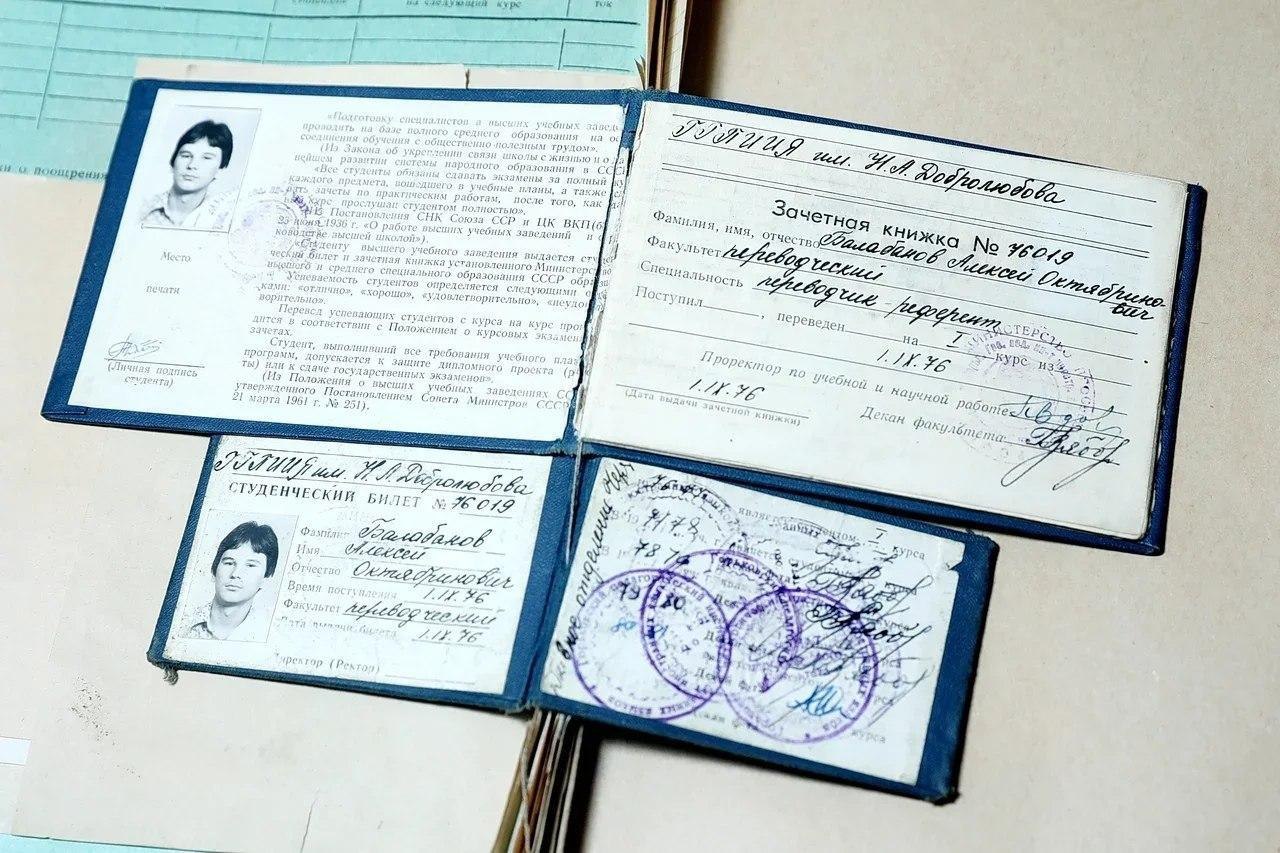 на следующий курс
ток
и о поощрения
«Подготовку специалистов в высших учебных завед
проводить на базе полного среднего образования на ос
соединения обучения с общественно-полезным трудом».
(Из Закона об укреплении связи школы с жизнью и о да
нейшем развитии системы народного образования в ССС
«Все студенты обязаны сдавать экзамены за полный ку
каждого предмета, вошедшего в учебные планы, а также
зачеты по практическим работам, после того, как
курс прослушан студентом полностью».
Постановления СНК Союза ССР и ЦК ВКП(б
23 июня 1936 г. «О работе высших учебных заведений и
ководстве высшей школой»).
«Студенту высшего учебного заведения выдается студе
ческий билет и зачетная книжка установленного Министерс
высшего и среднего специального образования СССР обра
Успеваемость студентов определяется следующими о
ками: «отлично», «хорошо», «удовлетворительно», «неудо
ворительно».
Перевод успевающих студентов с курса на курс про
дится в соответствии с Положением о курсовых экзамен
зачетах.
Студент, выполнивший все требования учебного пла
программ, допускается к защите дипломного проекта (р
ты) или к сдаче государственных экзаменов».
(Из Положения о высших учебных заведениях СС
утвержденного Постановлением Совета Министров СССР
21 марта 1961 г. № 251).
Место
печати
(Личная подпись
студента)
ГГПИИЯ им. Н.А. Добролюбова
Зачетная книжка № 76019
Фамилия, имя, отчество Балабанов Алексей Октябрино
вич
Факультет переводческий
Специальность переводчик-референт
Поступил , переведен
на I курс из
1.IX.76
Проректор по учебной и научной работе
1.IX.76
(Дата выдачи зачетной книжки)
Декан факультета
ГГПИИЯ им. Н.А. Добролюбова
СТУДЕНЧЕСКИЙ БИЛЕТ № 76019
Фамилия Балабанов
Имя Алексей
Отчество Октябринович
Время поступления 1.IX.76
Факультет переводческий
Дата выдачи билета 1.IX.76
Директор (Ректор)
является студентом I курса
77 78
78
79 80
курса